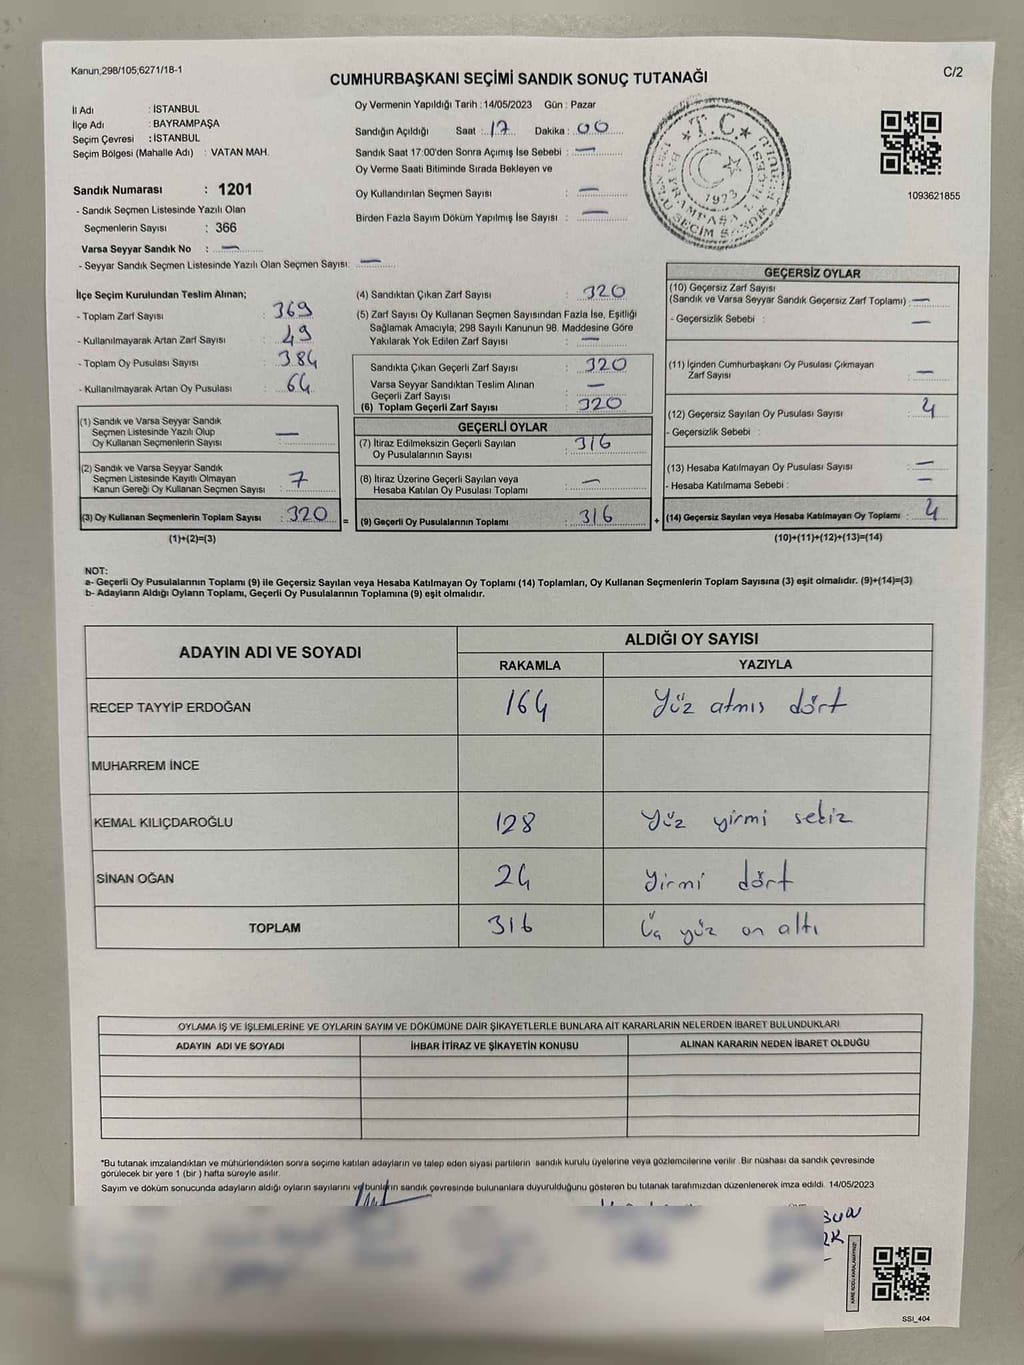 Kanun,298/105,6271/18-1
C/2
CUMHURBAŞKANI SEÇİMİ SANDIK SONUÇ TUTANAĞI
İl Adı : İSTANBUL
İlçe Adı : BAYRAMPAŞA
Seçim Çevresi : İSTANBUL
Seçim Bölgesi (Mahalle Adı) : VATAN MAH.
Sandık Numarası : 1201
- Sandık Seçmen Listesinde Yazılı Olan
Seçmenlerin Sayısı : 366
Varsa Seyyar Sandık No : —
- Seyyar Sandık Seçmen Listesinde Yazılı Olan Seçmen Sayısı: —
Oy Vermenin Yapıldığı Tarih :14/05/2023 Gün : Pazar
Sandığın Açıldığı Saat : 17 Dakika : 00
Sandık Saat 17:00'den Sonra Açımış İse Sebebi : —
Oy Verme Saati Bitiminde Sırada Bekleyen ve
Oy Kullandırılan Seçmen Sayısı : —
Birden Fazla Sayım Döküm Yapılmış İse Sayısı : —
T.C.
1923
BAYRAMPAŞA
1093621855
İlçe Seçim Kurulundan Teslim Alınan;
- Toplam Zarf Sayısı : 369
- Kullanılmayarak Artan Zarf Sayısı : 49
- Toplam Oy Pusulası Sayısı : 384
- Kullanılmayarak Artan Oy Pusulası : 64
(1) Sandık ve Varsa Seyyar Sandık
Seçmen Listesinde Yazılı Olup
Oy Kullanan Seçmenlerin Sayısı : —
(2) Sandık ve Varsa Seyyar Sandık
Seçmen Listesinde Kayıtlı Olmayan
Kanun Gereği Oy Kullanan Seçmen Sayısı : 7
(3) Oy Kullanan Seçmenlerin Toplam Sayısı : 320
(1)+(2)=(3)
(4) Sandıktan Çıkan Zarf Sayısı : 320
(5) Zarf Sayısı Oy Kullanan Seçmen Sayısından Fazla İse, Eşitliği
Sağlamak Amacıyla, 298 Sayılı Kanunun 98. Maddesine Göre
Yakılarak Yok Edilen Zarf Sayısı : —
Sandıkta Çıkan Geçerli Zarf Sayısı : 320
Varsa Seyyar Sandıktan Teslim Alınan
Geçerli Zarf Sayısı : —
(6) Toplam Geçerli Zarf Sayısı : 320
GEÇERLİ OYLAR
(7) İtiraz Edilmeksizin Geçerli Sayılan
Oy Pusulalarının Sayısı : 316
(8) İtiraz Üzerine Geçerli Sayılan veya
Hesaba Katılan Oy Pusulası Toplamı : —
= (9) Geçerli Oy Pusulalarının Toplamı : 316
GEÇERSİZ OYLAR
(10) Geçersiz Zarf Sayısı
(Sandık ve Varsa Seyyar Sandık Geçersiz Zarf Toplamı) : —
- Geçersizlik Sebebi : —
(11) İçinden Cumhurbaşkanı Oy Pusulası Çıkmayan
Zarf Sayısı : —
(12) Geçersiz Sayılan Oy Pusulası Sayısı : 4
- Geçersizlik Sebebi :
(13) Hesaba Katılmayan Oy Pusulası Sayısı : —
- Hesaba Katılmama Sebebi : —
+ (14) Geçersiz Sayılan veya Hesaba Katılmayan Oy Toplamı : 4
(10)+(11)+(12)+(13)=(14)
NOT:
a- Geçerli Oy Pusulalarının Toplamı (9) ile Geçersiz Sayılan veya Hesaba Katılmayan Oy Toplamı (14) Toplamları, Oy Kullanan Seçmenlerin Toplam Sayısına (3) eşit olmalıdır. (9)+(14)=(3)
b- Adayların Aldığı Oyların Toplamı, Geçerli Oy Pusulalarının Toplamına (9) eşit olmalıdır.
ADAYIN ADI VE SOYADI
ALDIĞI OY SAYISI
RAKAMLA YAZIYLA
RECEP TAYYİP ERDOĞAN 164 Yüz atmış dört
MUHARREM İNCE
KEMAL KILIÇDAROĞLU 128 Yüz yirmi sekiz
SİNAN OĞAN 24 Yirmi dört
TOPLAM 316 Üç yüz on altı
OYLAMA İŞ VE İŞLEMLERİNE VE OYLARIN SAYIM VE DÖKÜMÜNE DAİR ŞİKAYETLERLE BUNLARA AİT KARARLARIN NELERDEN İBARET BULUNDUKLARI
ADAYIN ADI VE SOYADI İHBAR İTİRAZ VE ŞİKAYETİN KONUSU ALINAN KARARIN NEDEN İBARET OLDUĞU
*Bu tutanak imzalandıktan ve mühürlendikten sonra seçime katılan adayların ve talep eden siyasi partilerin sandık kurulu üyelerine veya gözlemcilerine verilir. Bir nüshası da sandık çevresinde
görülecek bir yere 1 (bir ) hafta süreyle asılır.
Sayım ve döküm sonucunda adayların aldığı oyların sayılarını ve bunların sandık çevresinde bulunanlara duyurulduğunu gösteren bu tutanak tarafımızdan düzenlenerek imza edildi. 14/05/2023
SSI_404